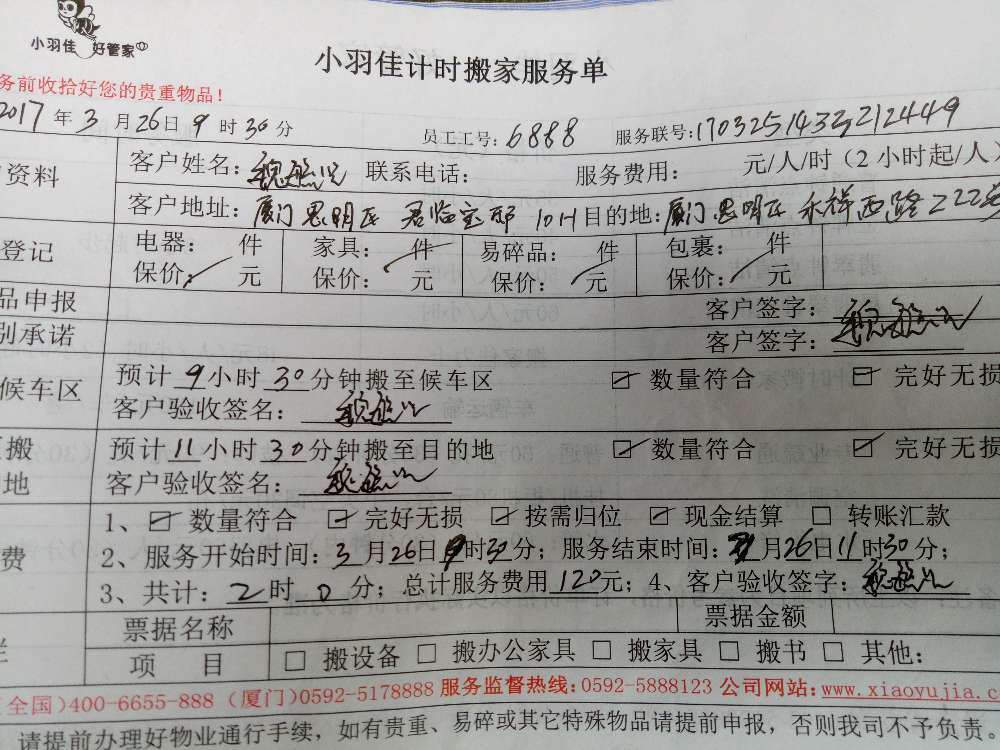 小羽佳 好管家
小羽佳计时搬家服务单
务前收拾好您的贵重物品！
2017年3月26日9时30分 员工工号：6888 服务联号：
资料 客户姓名： 联系电话： 服务费用： 元/人/时（2小时起/人）
客户地址：厦门思明区 君临宝邸 目的地：厦门思明区 禾祥西路222号
登记 电器： 件 家具： 件 易碎品： 件 包裹： 件
保价： 元 保价： 元 保价： 元 保价： 元
品申报 客户签字：
别承诺 客户签字：
候车区 预计9小时30分钟搬至候车区 ☑ 数量符合 ☑ 完好无损
客户验收签名：
搬 预计11小时30分钟搬至目的地 ☑ 数量符合 ☑ 完好无损
地 客户验收签名：
1、☑ 数量符合 ☑ 完好无损 ☑ 按需归位 ☑ 现金结算 □ 转账汇款
费 2、服务开始时间：3月26日9时30分；服务结束时间：3月26日11时30分；
3、共计：2时0分；总计服务费用120元；4、客户验收签字：
票据名称 票据金额
项 目 □ 搬设备 □ 搬办公家具 □ 搬家具 □ 搬书 □ 其他：
（全国）400-6655-888（厦门）0592-5178888 服务监督热线：0592-5888123 公司网站：www.xiaoyujia.c
请提前办理好物业通行手续，如有贵重、易碎或其它特殊物品请提前申报，否则我司不予负责。